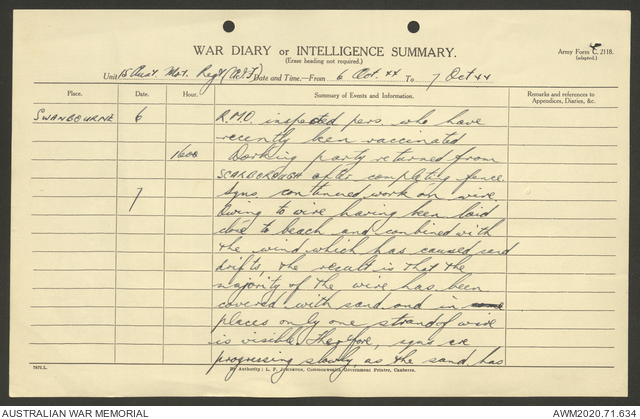 WAR DIARY or INTELLIGENCE SUMMARY.
(Erase heading not required.)
Army Form C. 2118.
(adapted.)
Unit 15 Aust. Mot. Regt (W.F.) Date and Time.—From 6 Oct. 44 To 7 Oct 44
Place. Date. Hour. Summary of Events and Information. Remarks and references to Appendices, Diaries, &c.
SWANBOURNE 6 R.M.O. inspected pers. who have
recently been vaccinated
1600 Working party returned from
SCARBOROUGH after completing fence.
7 Sqns continued work on wire
Owing to wire having been laid
close to beach and combined with
the wind which has caused sand
drifts, the result is that the
majority of the wire has been
covered with sand and in
places only one strand of wire
is visible. Therefore, sqns are
progressing slowly, as the sand has
7872.L. By Authority: L. F. JOHNSTON, Commonwealth Government Printer, Canberra.
AUSTRALIAN WAR MEMORIAL AWM2020.71.634